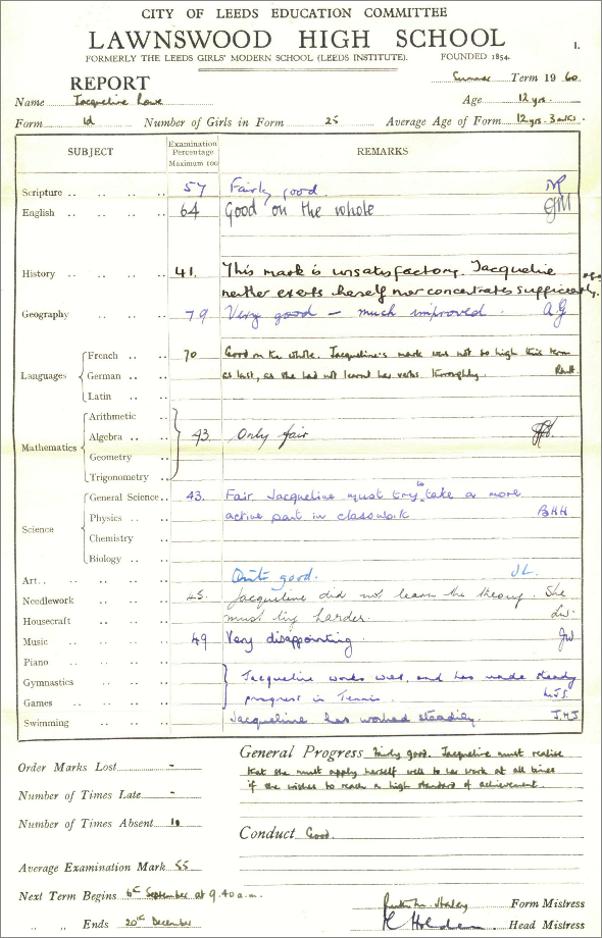 CITY OF LEEDS EDUCATION COMMITTEE
LAWNSWOOD HIGH SCHOOL
1.
FORMERLY THE LEEDS GIRLS' MODERN SCHOOL (LEEDS INSTITUTE). FOUNDED 1854.
REPORT
Summer Term 1960
Name Jacqueline Rowe Age 12 yrs.
Form 1d Number of Girls in Form 25 Average Age of Form 12 yrs. 3 mths.
SUBJECT Examination Percentage Maximum 100 REMARKS
Scripture 57 Fairly good.
English 64 Good on the whole
History 41. This mark is unsatisfactory. Jacqueline
neither exerts herself nor concentrates sufficiently.
Geography 79 Very good – much improved. A.G
Languages
French 70 Good on the whole. Jacqueline's mark was not so high this term
German as last, as she had not learnt her verbs thoroughly.
Latin
Mathematics
Arithmetic
Algebra 43. Only fair
Geometry
Trigonometry
Science
General Science 43. Fair. Jacqueline must try to take a more
Physics active part in classwork BHH
Chemistry
Biology
Art Quite good. J.L.
Needlework 45. Jacqueline did not learn the theory. She
Housecraft must try harder.
Music 49 Very disappointing. JW
Piano
Gymnastics Jacqueline works well, and has made steady
Games progress in Tennis.
Swimming Jacqueline has worked steadily. J.M.J
Order Marks Lost -
Number of Times Late -
Number of Times Absent 10
Average Examination Mark 55
Next Term Begins 6th September at 9.40 a.m.
„ „ Ends 20th December
General Progress Fairly good. Jacqueline must realise
that she must apply herself well to her work at all times
if she wishes to reach a high standard of achievement.
Conduct Good.
Form Mistress
K Holden Head Mistress